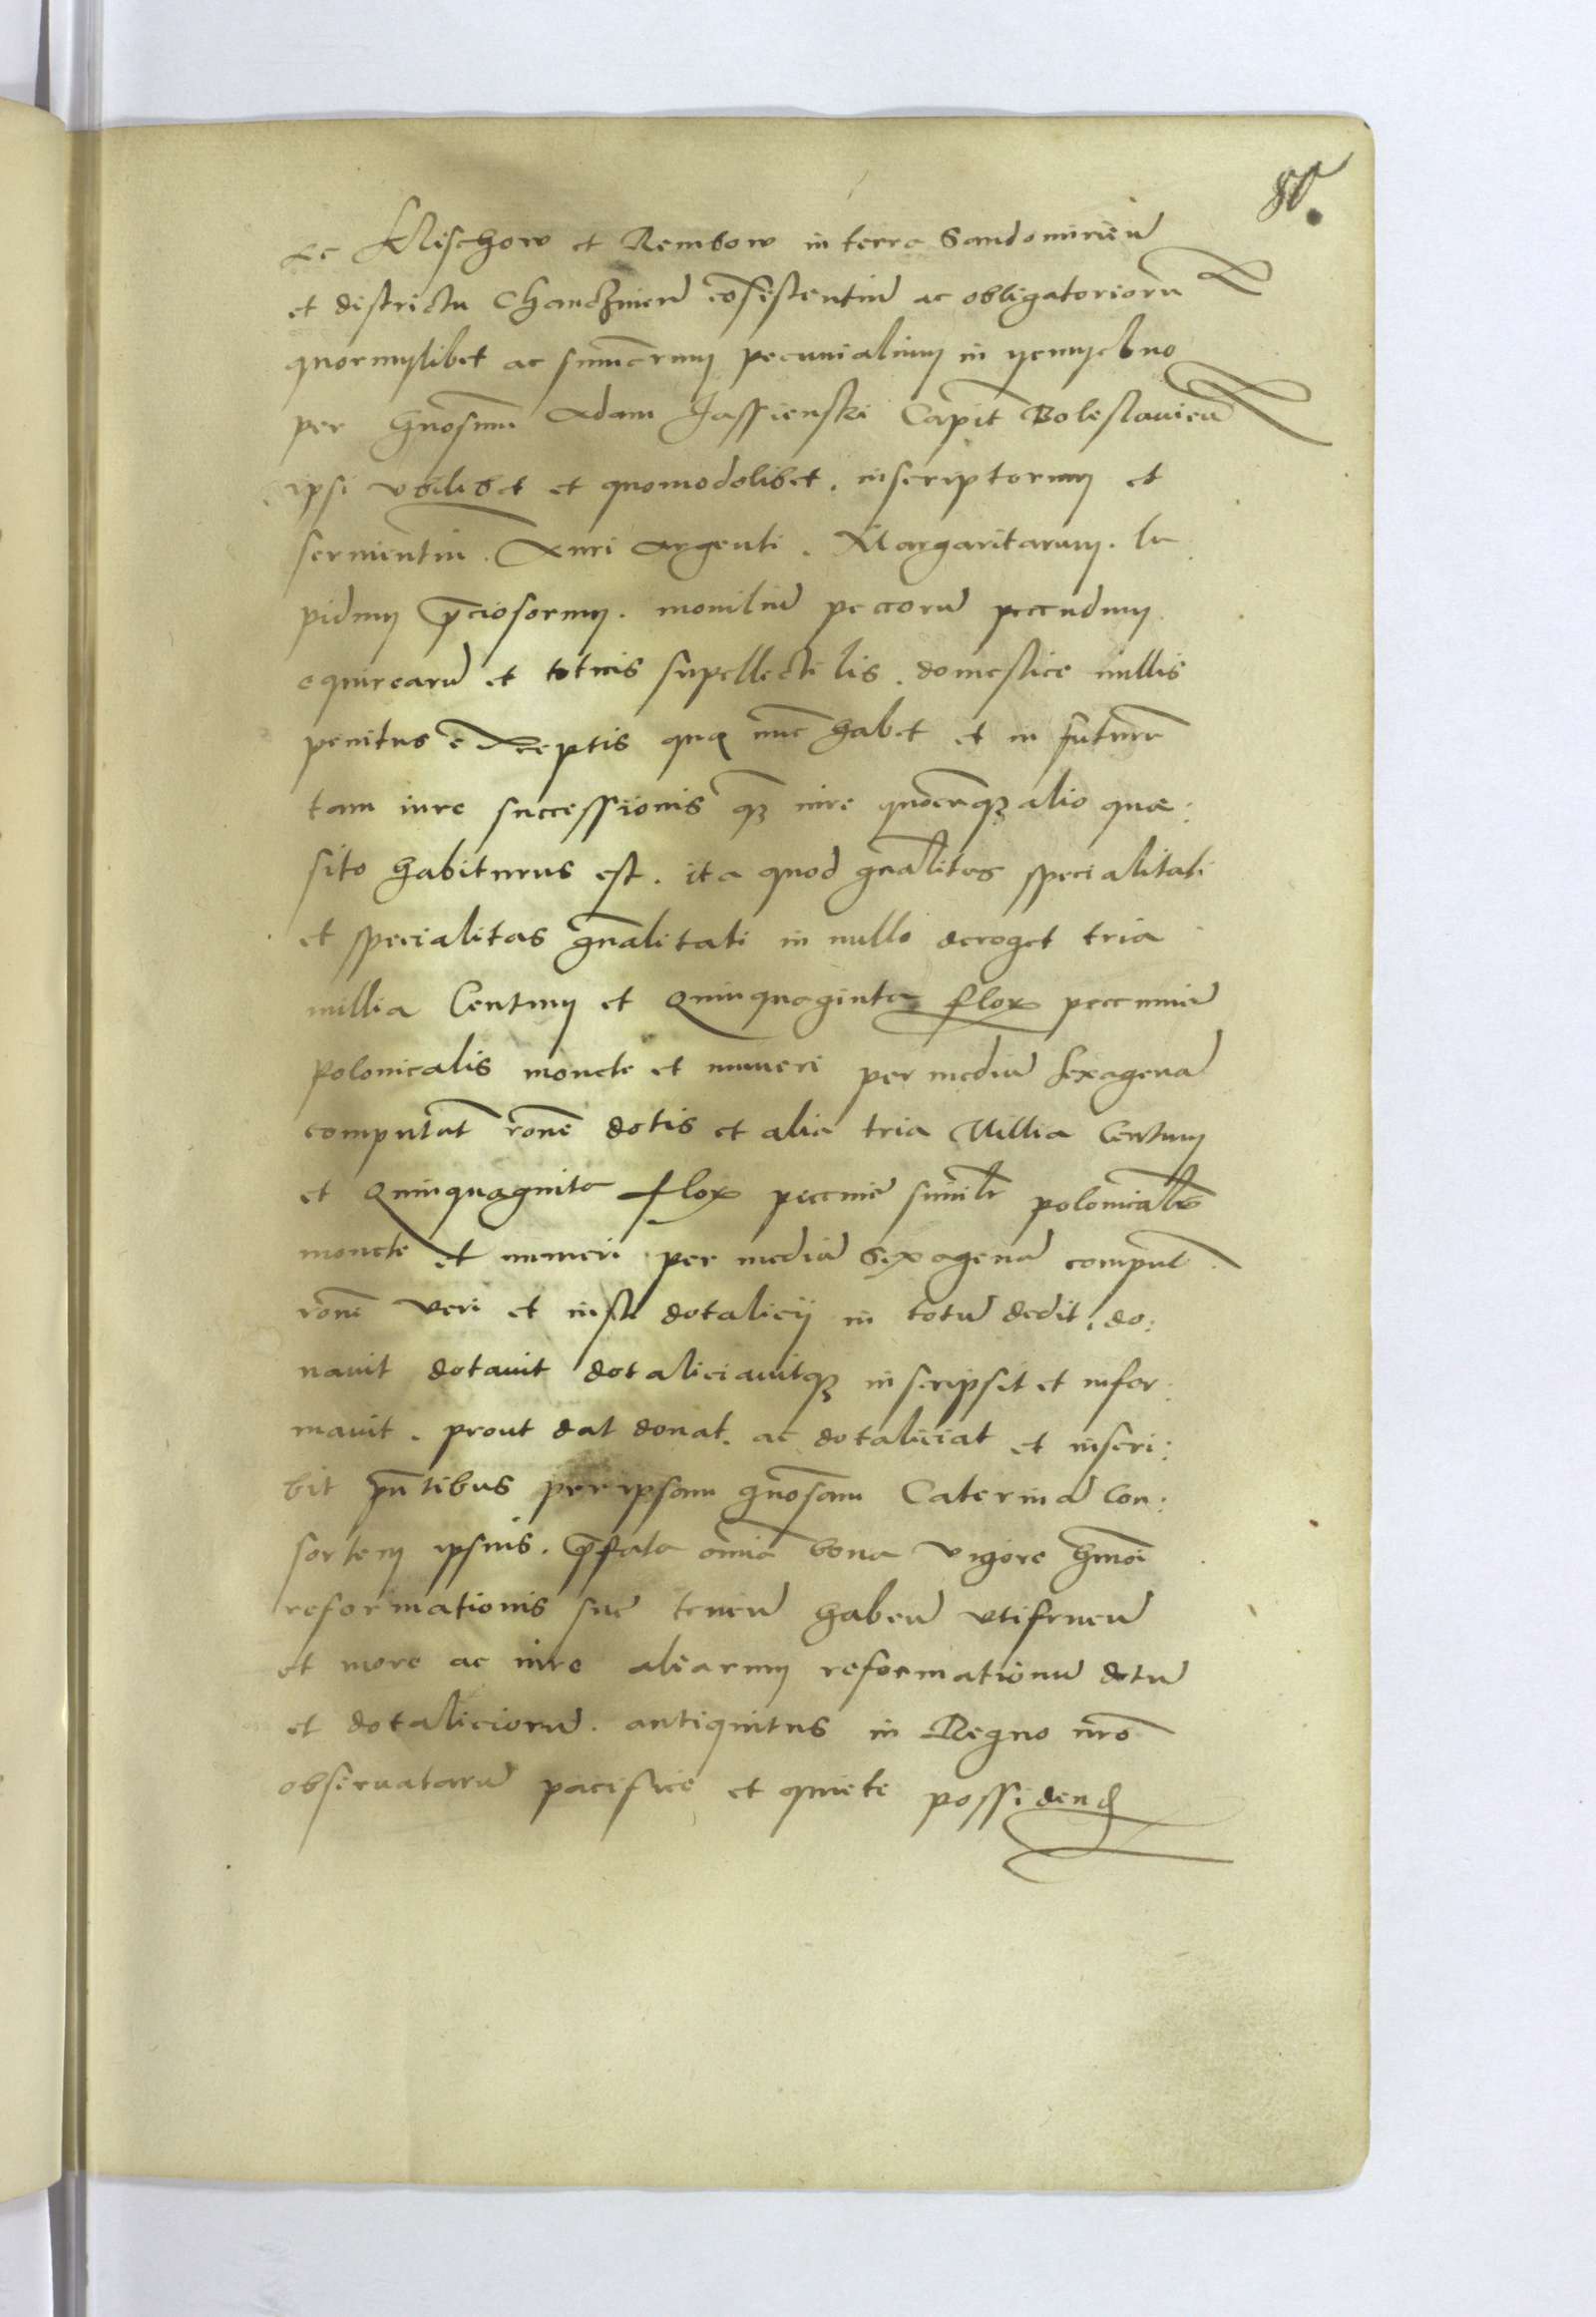 80.
ac Klischow et Rembow in terra Sandomirieñ
et districtu Chanczinieñ cōsistentiū ac obligatoriorū
quorumlibet ac sum̄arum pecunialium in
per Gn̄osum Adam Jassienski Capit̄ Boleslauieñ
ipsi vbilibet et quomodolibet. inscriptorum et
seruientiū. Auri Argenti. Margaritarum. la
pidum p̄ciosorum. moniliū peccorū peccudum
equirearū et totius supellectilis. domestice nullis
penitus exceptis quę nūc habet et in futurū
tam iure successionis q̄ȝ iure quocūqȝ alio quæ:
sito habiturus est. ita quod gn̄alitas specialitati
et specialitas gn̄alitati in nullo deroget tria
millia Centum et Quinquaginta flox peccuniē
polonicalis monete et numeri per mediū sexagenā
computat̄ rōne dotis et alia tria Millia Centum
et Quinquaginta flox peccuniē similr̄ polonicalis
monete et numeri per mediā Sexagenā comput̄
rōne veri et iusti dotalicij in totū dedit, do:
nauit dotauit dotaliciauitqȝ inscripsit et refor:
mauit. prout dat donat. ac dotaliciat et inscri:
bit pn̄tibus per ipsam gn̄osam Caterinā Con:
sortem ipsius. p̄fata om̄ia bona vigore hm̄oi
reformationis sue teneñ habeñ vtifrueñ
et more ac iure aliarum reformationū dotū
et dotaliciorū. antiquitus in Regno nr̄o
obseruatarū pacifice et quiete possidend